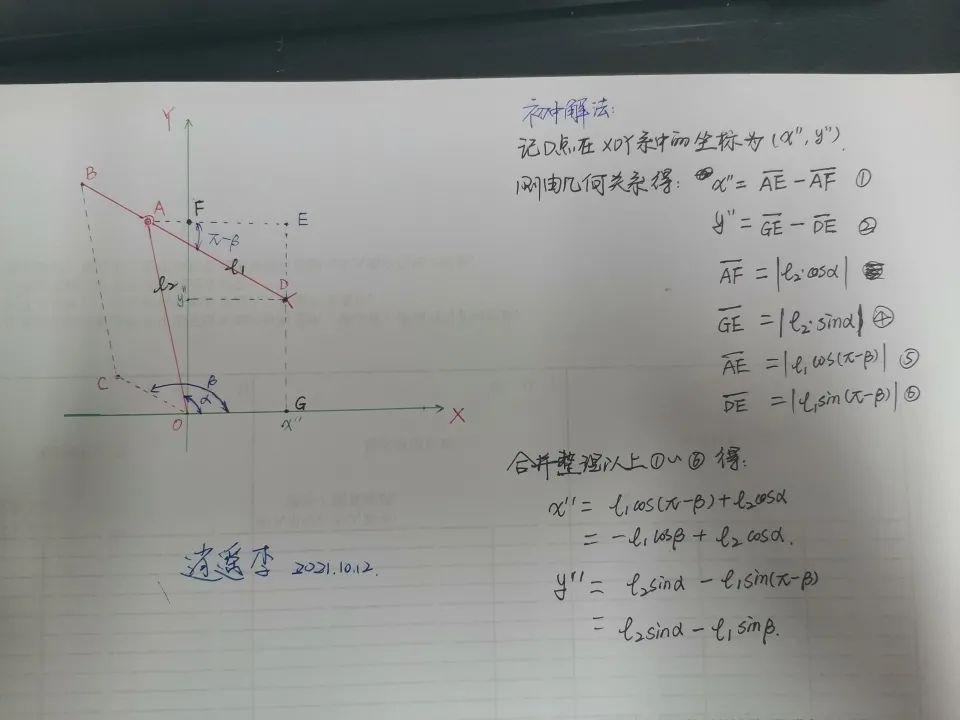 Y
B
A
F
E
π-β
l₂
l₁
D
y"
C
β
α
O
G
x"
X
初中解法:
记D点在XOY系中的坐标为(x",y").
则由几何关系得: x" = AE - AF ①
y" = GE - DE ②
AF = |l₂·cosα|
GE = |l₂·sinα| ④
AE = |l₁cos(π-β)| ⑤
DE = |l₁sin(π-β)| ⑥
合并整理以上①~⑥得:
x" = l₁cos(π-β)+l₂cosα
= -l₁cosβ + l₂cosα.
y" = l₂sinα - l₁sin(π-β)
= l₂sinα - l₁sinβ.
逍遥李 2021.10.12.